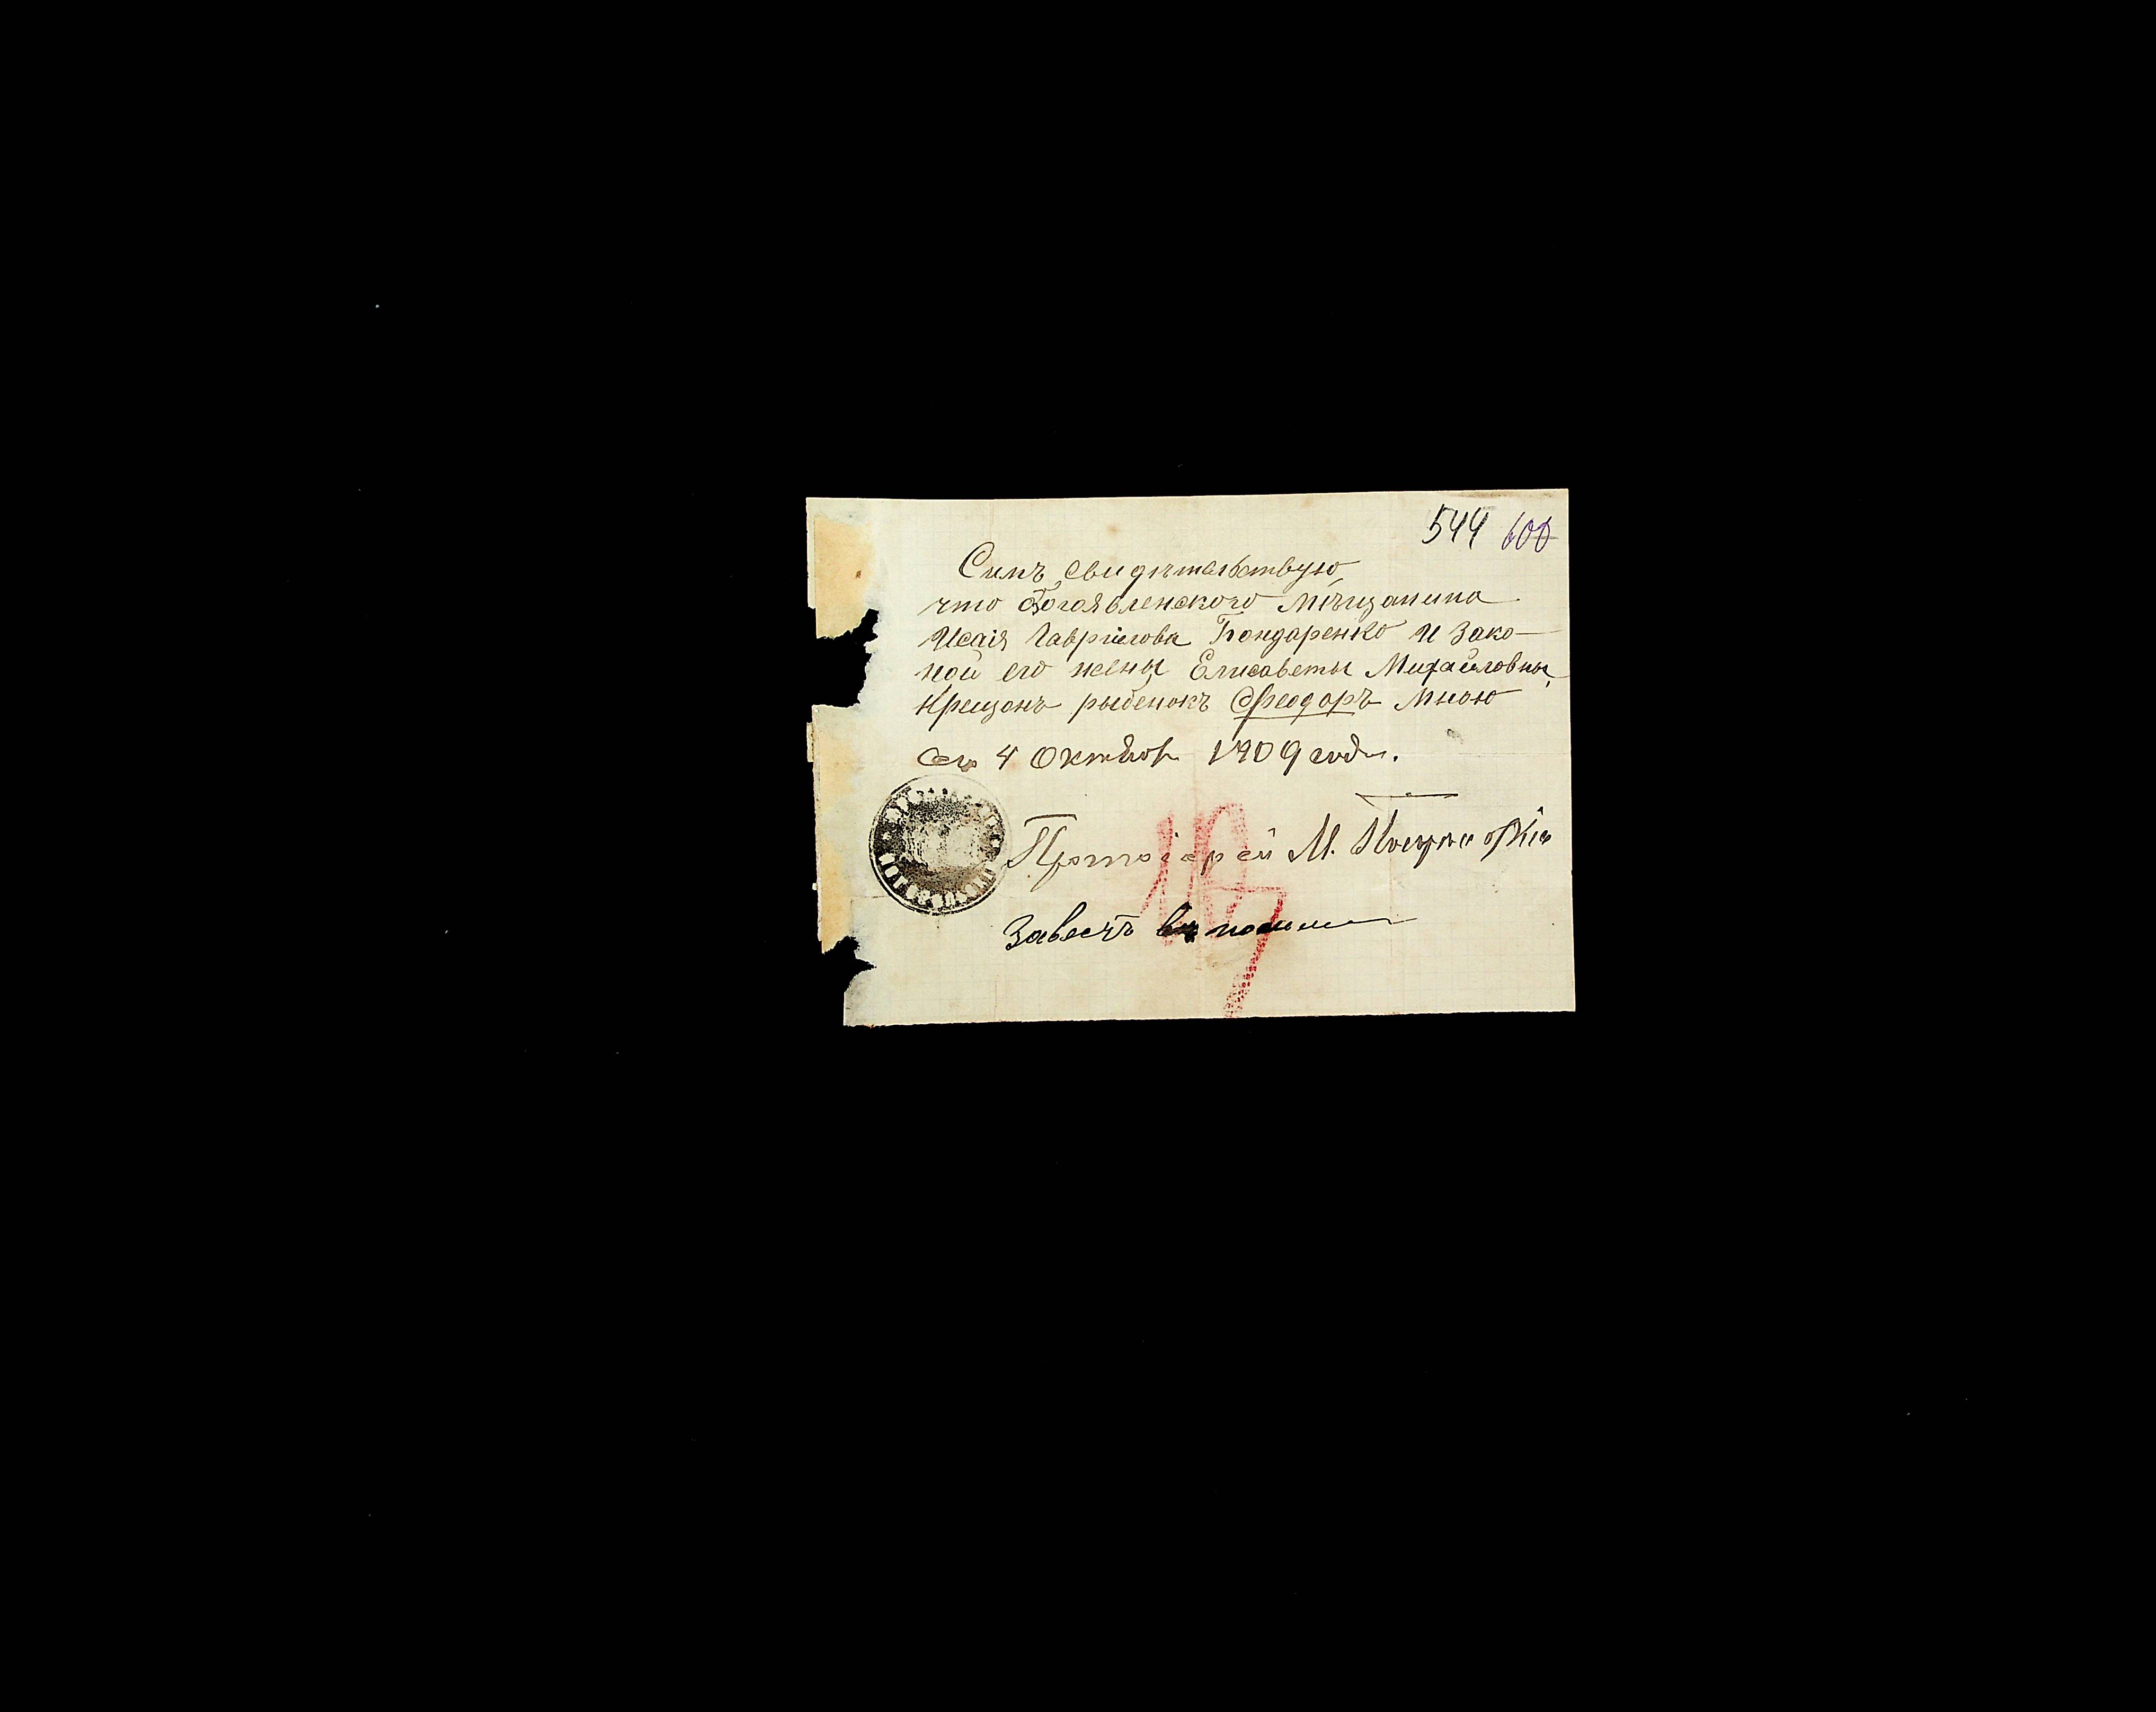 544 600
Симъ свидѣтельствую,
что Богоявленского мѣщанина
Исаія Гавріилова Бондаренко и зако-
ной его жены Елисаветы Михайловны,
крещонъ рыбенокъ Феодоръ мною
сего 4 Октября 1909 года.
Протоіерей М.
Завесть въ